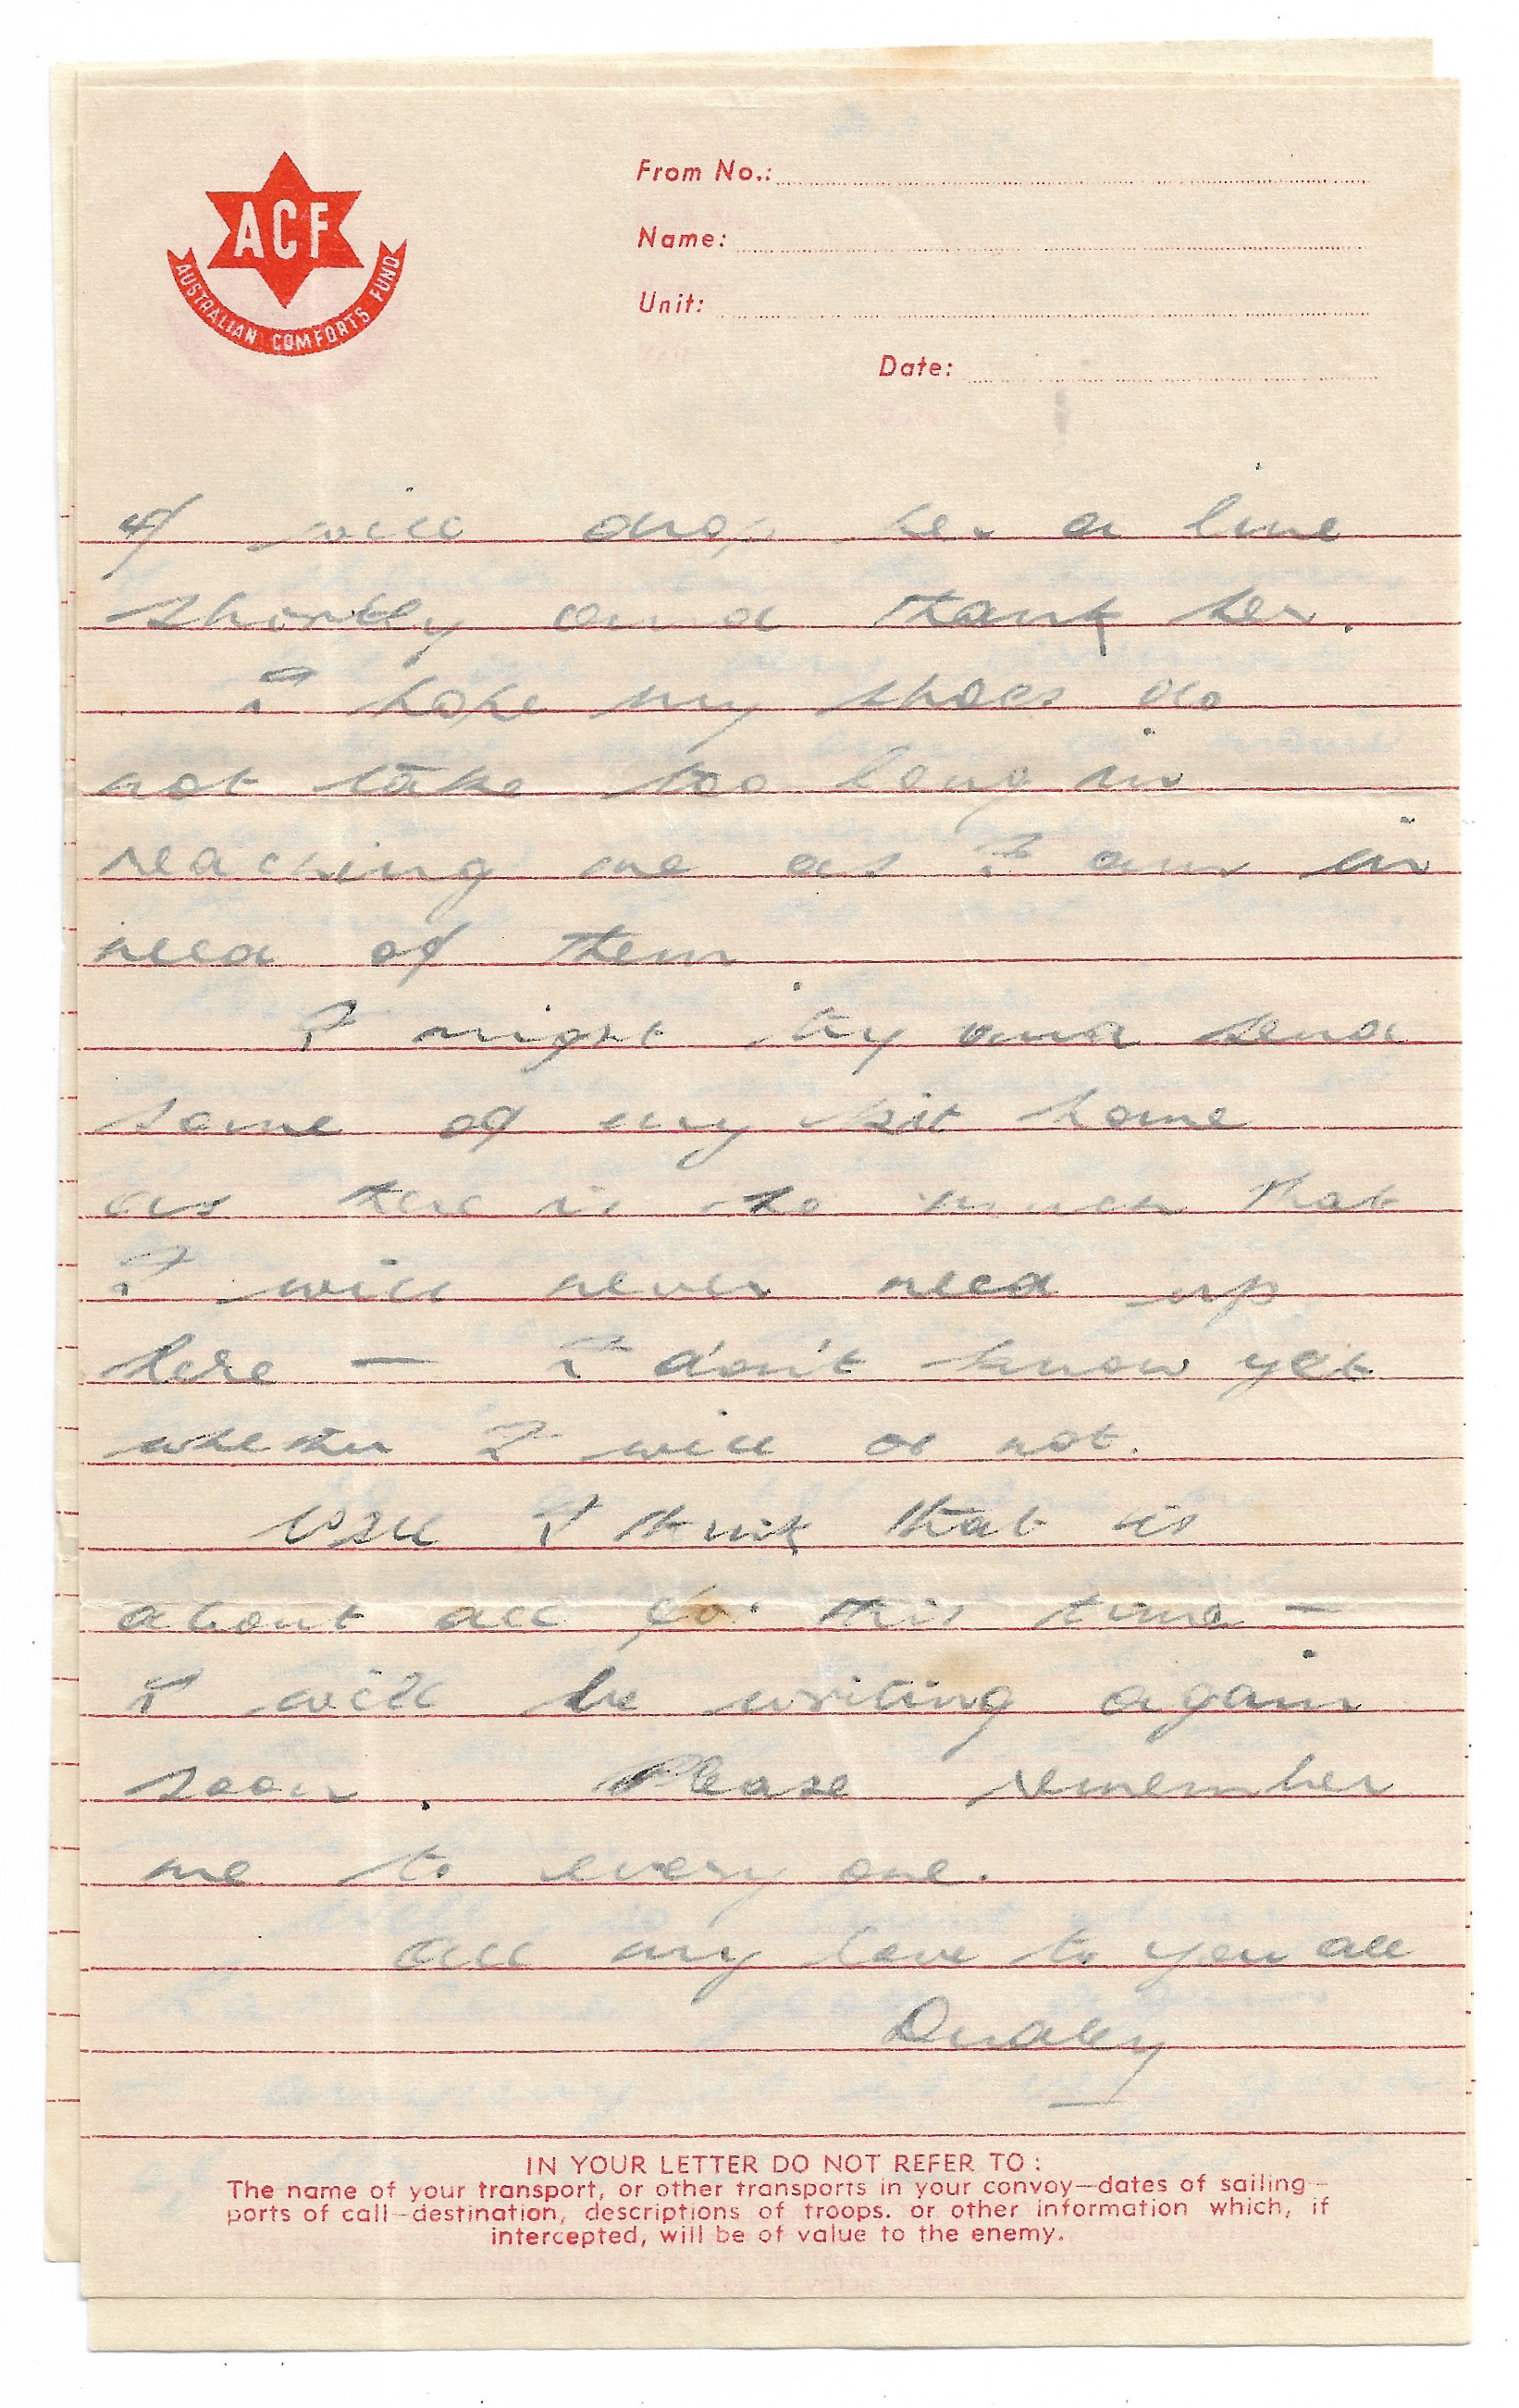 ACF
AUSTRALIAN COMFORTS FUND
From No.:
Name:
Unit:
Date:
4/ will drop her a line
shortly and thank her.
I hope my shoes do
not take too long in
reaching me as I am in
need of them
I might try and send
some of my kit home
as there is so much that
I will never need up
here — I don't know yet
whether I will or not.
Well I think that is
about all for this time —
I will be writing again
soon. Please remember
me to every one.
All my love to you all
Dudley
IN YOUR LETTER DO NOT REFER TO :
The name of your transport, or other transports in your convoy—dates of sailing—
ports of call—destination, descriptions of troops. or other information which, if
intercepted, will be of value to the enemy.